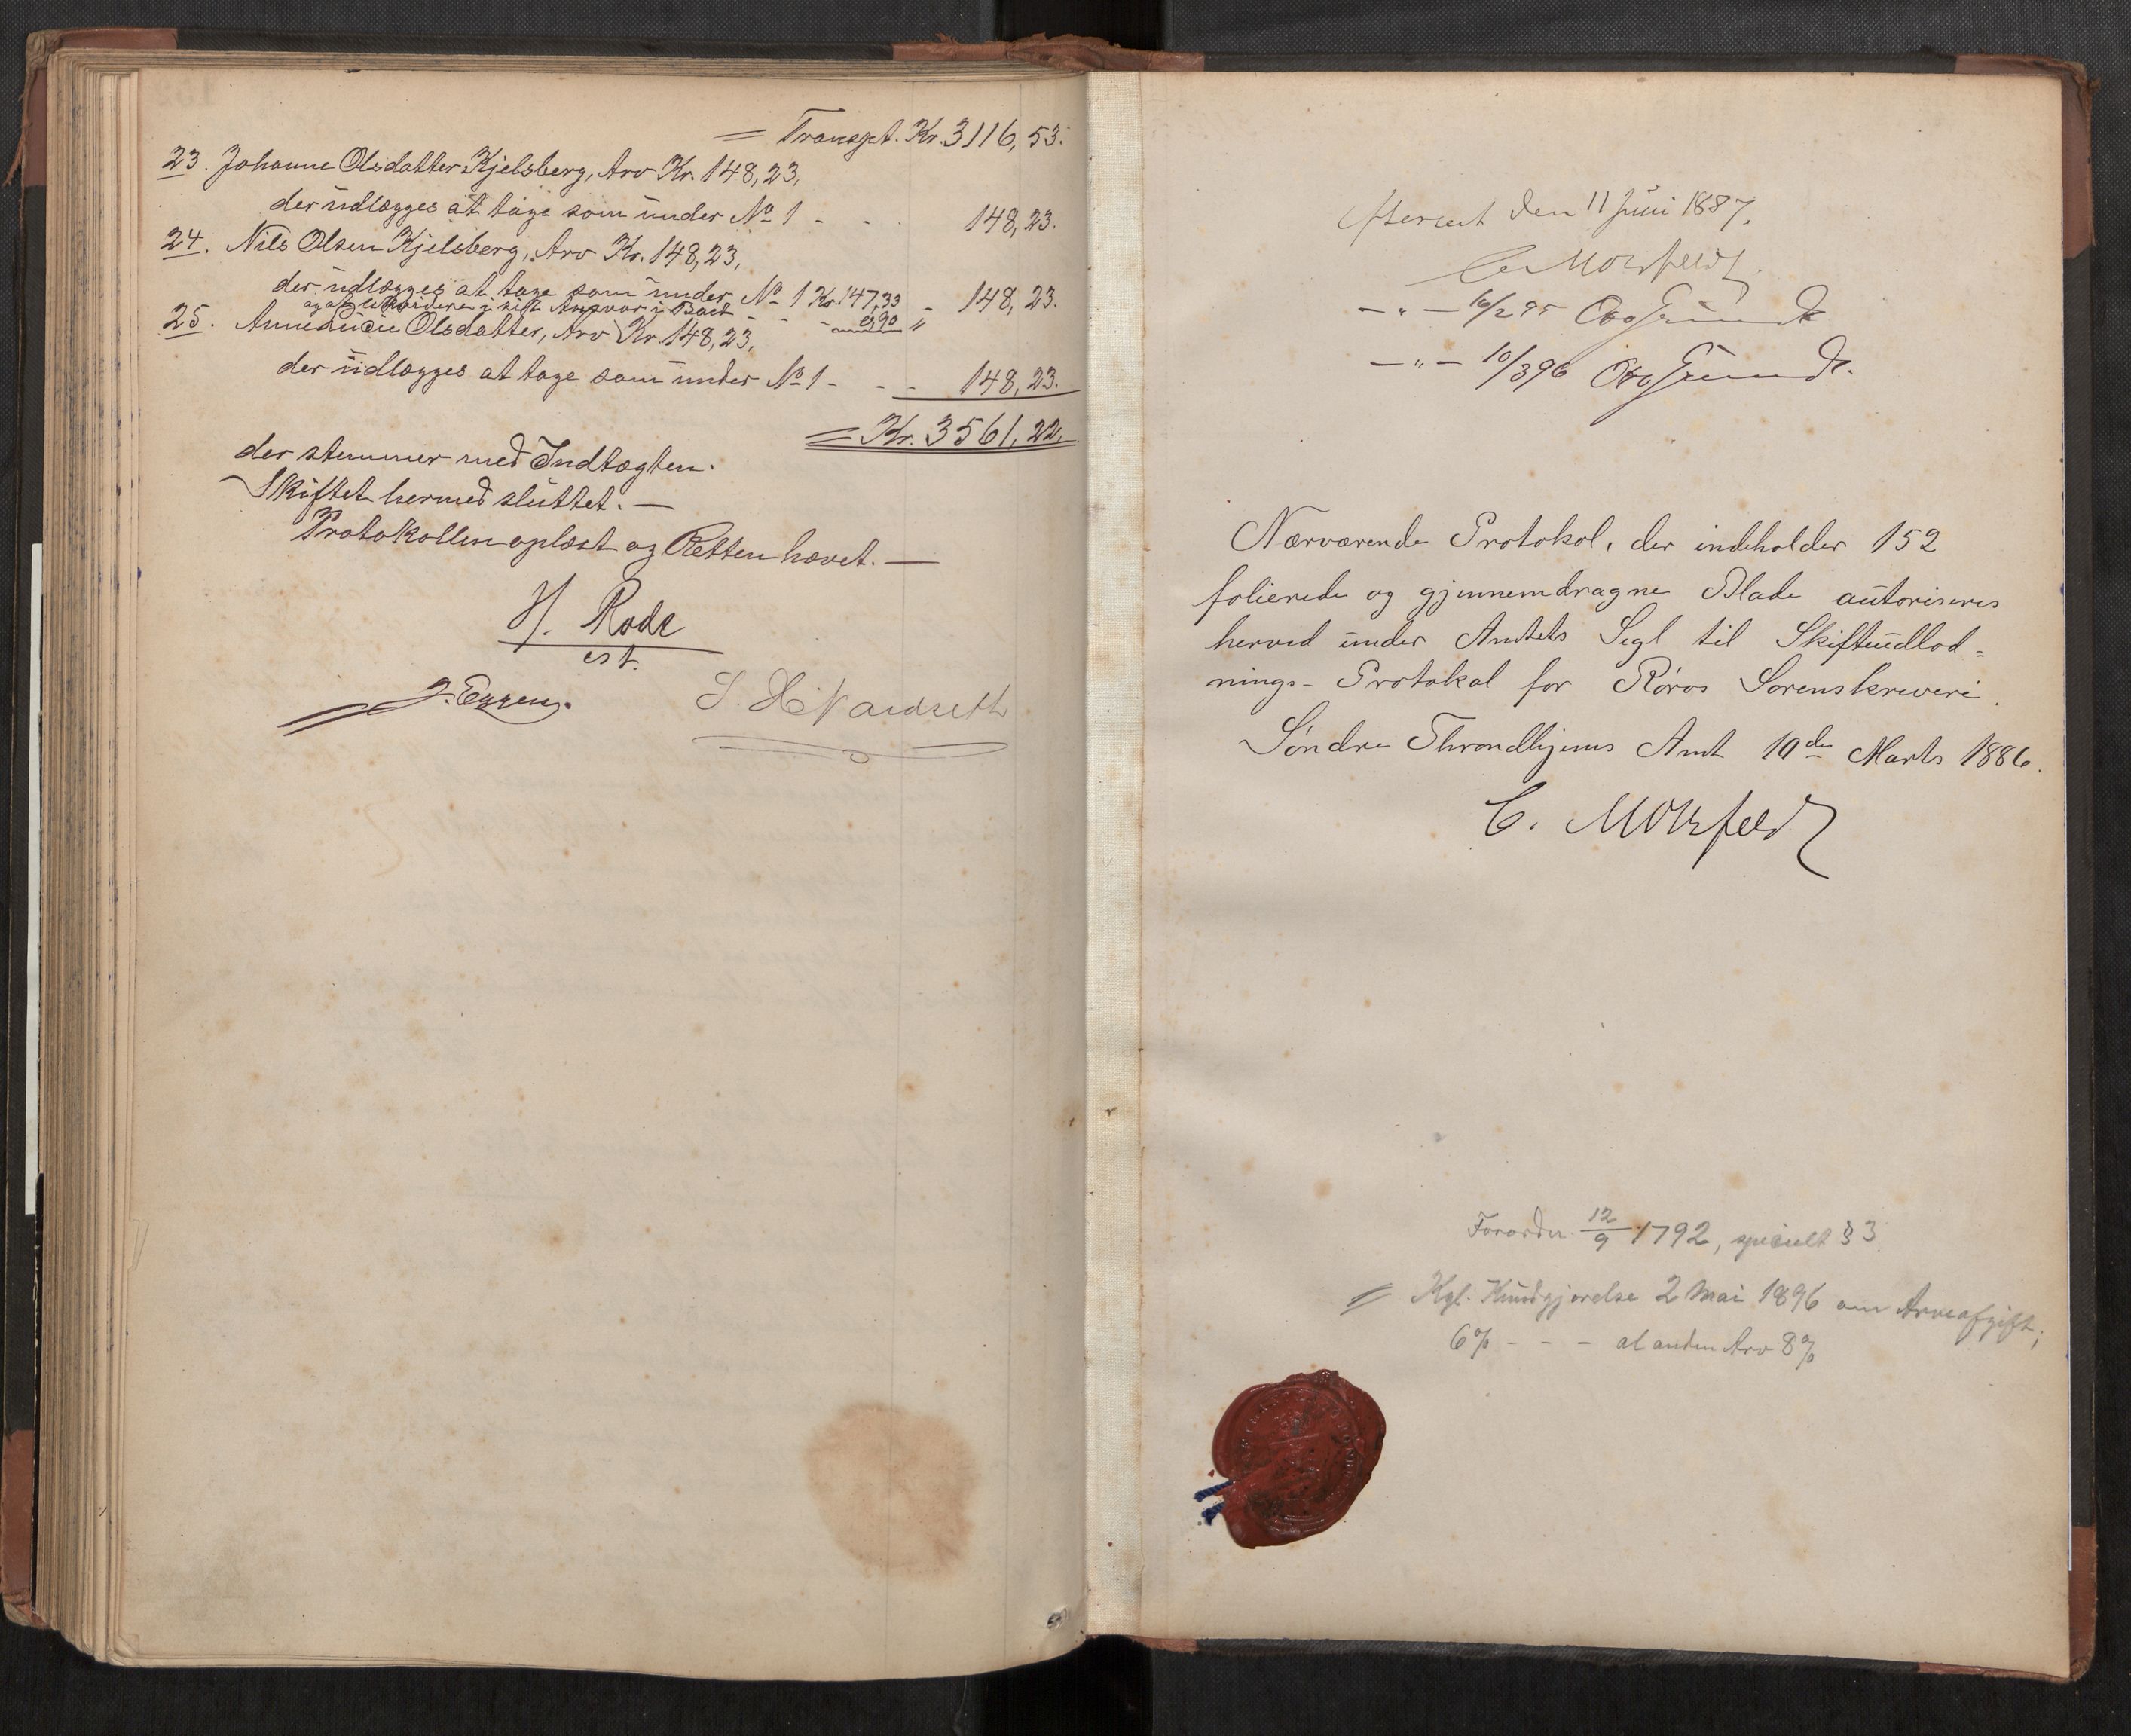 = Transpt. Kr. 3116,53.
23. Johanne Olsdatter Kjelsberg, Arv Kr. 148,23,
der udlægges at tage som under No 1 - - 148,23.
24. Nils Olsen Kjelsberg, Arv Kr. 148,23,
der udlægges at tage som under No 1 Kr. 147,33 - 148,23.
og at likvidere i sit Ansvar i Boet - - - 0,90 "
25. Olsdatter, Arv Kr. 148,23,
der udlægges at tage som under No 1 - - - 148,23.
= Kr. 3561,22.
der stemmer med Indtægten.
Skiftet hermed sluttet. —
Protokollen oplæst og Retten hævet. —
H. Rode
cst.
J. Eggen.
Efterseet den 11 Juni 1887.
C. Motzfeldt
— " — 16/2 95
— " — 10/3 96
Nærværende Protokol, der indeholder 152
folierede og gjennemdragne Blade autoriseres
herved under Amtets Segl til Skifteudlod=
nings-Protokol for Røros Sorenskriveri.
Søndre Throndhjems Amt 10de Marts 1886.
C. Motzfeldt
Forordn. 12/9 1792, specielt § 3
Kgl. Kundgjørelse 2 Mai 1896 om Arveafgift;
6% - - - al anden Arv 8%